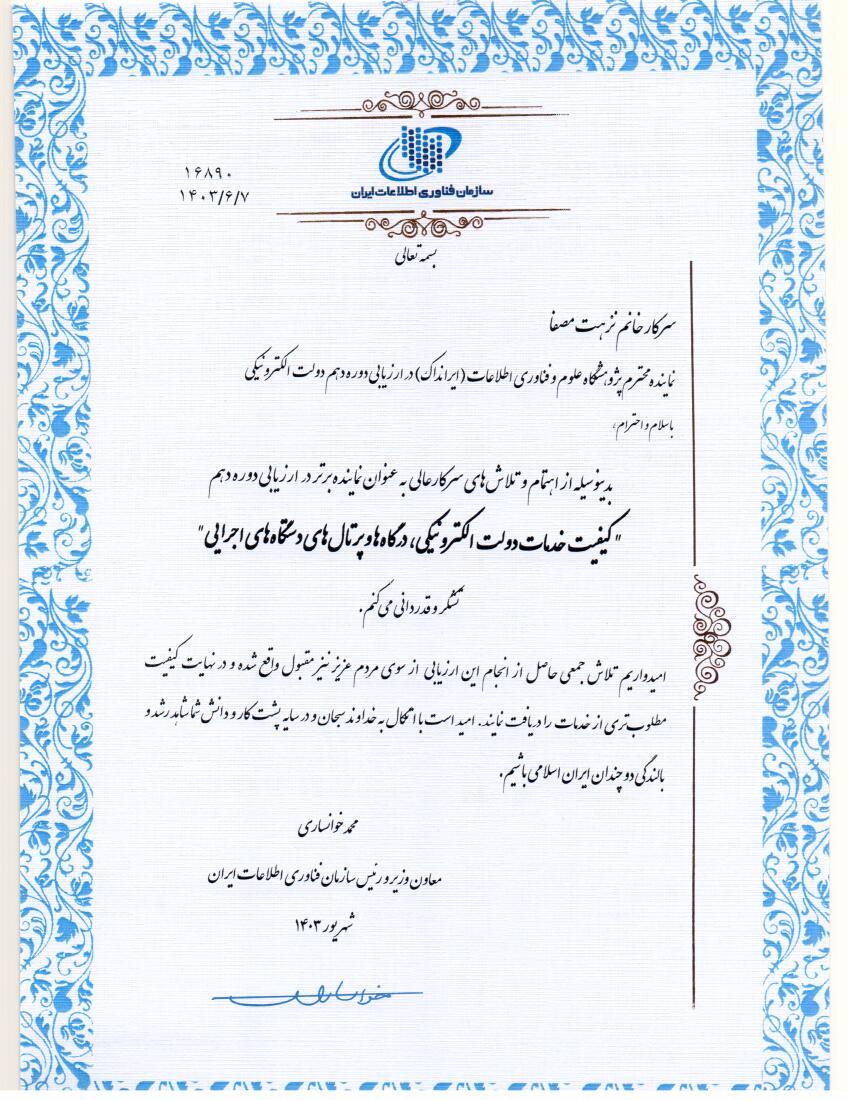 ۱۶۸۹۰
۱۴۰۳/۶/۷
سازمان فناوری اطلاعات ایران
بسمه تعالی
سرکار خانم نزهت مصفا
نماینده محترم پژوهشگاه علوم و فناوری اطلاعات (ایرانداک) در ارزیابی دوره دهم دولت الکترونیکی
باسلام و احترام،
بدینوسیله از اهتمام و تلاش های سرکارعالی به عنوان نماینده برتر در ارزیابی دوره دهم
"کیفیت خدمات دولت الکترونیکی، درگاه ها و پرتال های دستگاه های اجرایی"
تشکر و قدردانی می کنم.
امیدواریم تلاش جمعی حاصل از انجام این ارزیابی از سوی مردم عزیز نیز مقبول واقع شده و در نهایت کیفیت
مطلوب تری از خدمات را دریافت نمایند. امید است با اتکال به خداوند سبحان و در سایه پشت کار و دانش شما شاهد رشد و
بالندگی دو چندان ایران اسلامی باشیم.
محمد خوانساری
معاون وزیر و رئیس سازمان فناوری اطلاعات ایران
شهریور ۱۴۰۳